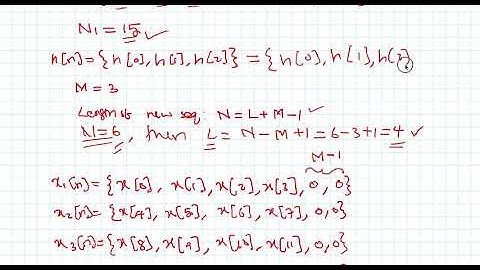 N1 = 15 ✓
h[n] = {h[0], h[1], h[2]} = {h[0], h[1], h[2]
M = 3
Length of new seq: N = L+M-1 ✓
N=6, then L = N-M+1 = 6-3+1 = 4 ✓
M-1
x1[n] = {x[0], x[1], x[2], x[3], 0, 0}
x2[n] = {x[4], x[5], x[6], x[7], 0, 0}
x3[n] = {x[8], x[9], x[10], x[11], 0, 0}